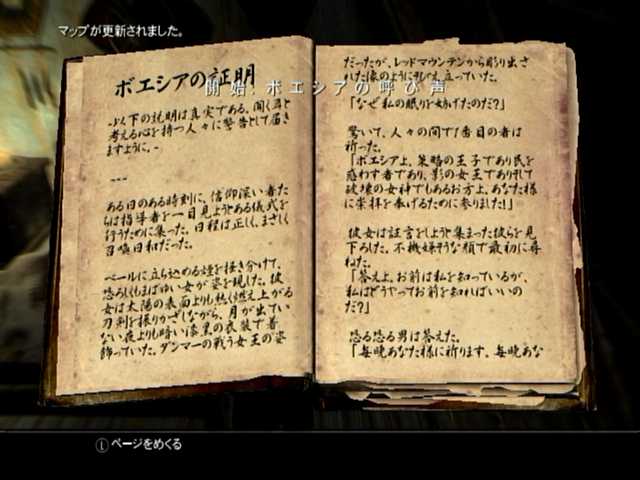 マップが更新されました。
ボエシアの証明
開始: ボエシアの呼び声
-以下の説明は真実である。聞く耳と
考える心を持つ人々に警告として届き
ますように。-
---
ある日のある時刻に、信仰深い者た
ちは指導者を一目見ようとある儀式を
行うために集った。日程は正しく、まさしく
召喚日和だった。
ベールに立ち込める煙を掻き分けて、
恐ろしくもまばゆい女が姿を現した。彼
女は太陽の表面よりも熱く燃え上がる
刀剣を振りかざしながら、月が出てい
ない夜よりも暗い漆黒の衣装で着
飾っていた。ダンマーの戦う女王の姿
だったが、レッドマウンテンから彫り出さ
れた像のようにそびえ立っていた。
「なぜ私の眠りを妨げたのだ?」
驚いて、人々の間で1番目の者は
祈った。
「ボエシアよ、策略の王子であり民を
惑わす者であり、影の女王でありそして
破壊の女神でもあるお方よ、あなた様
に崇拝を捧げるために参りました!」
彼女は証言をしようと集まった彼らを見
下ろした。不機嫌そうな顔で最初に尋
ねた。
「答えよ。お前は私を知っているが、
私はどうやってお前を知ればいいの
だ?」
恐る恐る男は答えた。
「毎晩あなた様に祈ります。毎晩あな
Ⓛページをめくる